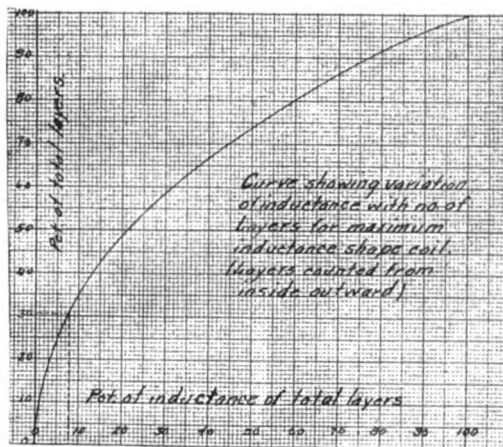 100
90
80
70
60
50
40
30
20
10
0
Pct of total layers.
Curve showing variation
of inductance with no. of
layers for maximum
inductance shape coil.
(Layers counted from
inside outward)
Pct. of inductance of total layers
0 10 20 30 40 50 60 70 80 90 100